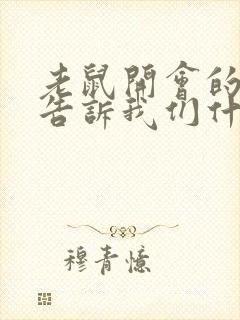 老鼠開會的
告訴我们什
穆青憶